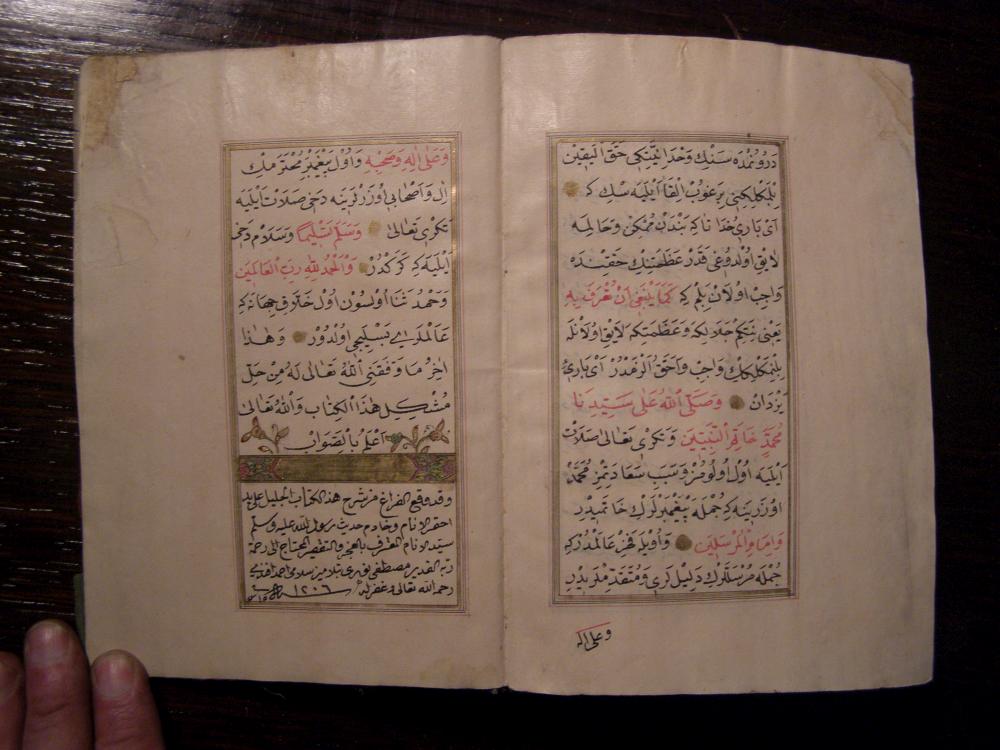 دروُنمده سنك وحدانيتكى حقّ اليقين
بلمكلكينى مرغوب القا ايليه سك كه
اى بارئ خدا تاكه بندن ممكن وحالمه
لايق اولدوغى قدر عظمتك حقنده
واجب اولان بلم كه كما ينبغى ان تعرف به
يعنى سنكم جلالكه وعظمتكه لايق اولانله
بلنمكلكك واجب واحق الزمدر اى بارئ
يزدان وصلى الله على سيدنا
محمد خاتم النبيين وتكرى تعالى صلات
ايليه اول اولومز وسبب سعادتمز محمد
اوزرينه كه جمله پيغمبرلرك خاتميدر
وامام المرسلين واويله فخر عالمدركه
جمله مرسللرك دليللرى ومقتدالريدر
وعلى اله
وعلى اله وصحبه واول پيغمبر محترمك
ال واصحابى اوزرلرينه دخى صلات ايليه
تكرى تعالى وسلم تسليما وسلام دخى
ايليه كه كركدر والحمد لله رب العالمين
وحمد ثنا اولسون اول خلاق جهانه كه
عالملرى بسليجى اولدور وهذا
اخر ما وفقنى الله تعالى له من حل
مشكل هذا الكتاب والله تعالى
اعلم بالصواب
وقد وقع الفراغ من شرح هذا الكتاب الجليل على يد
احقر الانام وخادم حديث رسول الله عليه وسلم
سيد الانام المعترف بالعجز والتقصير المحتاج الى رحمة
ربه القدير مصطفى من تلاميز سلامى احمد افندى
رحمه الله تعالى وغفر له ١٢٠٦